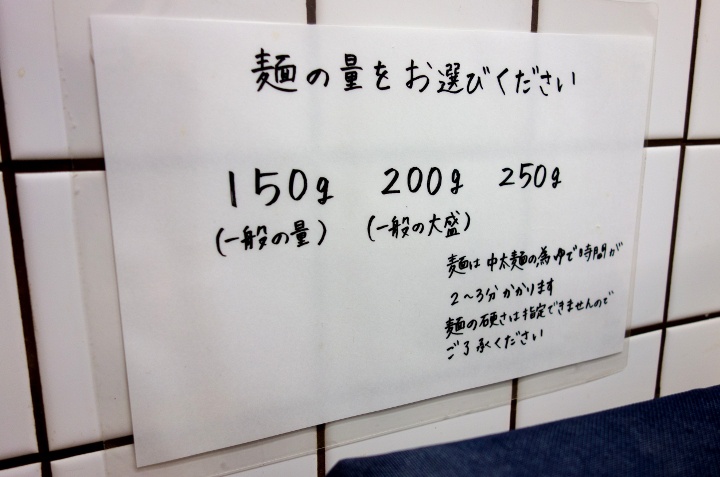 麺の量をお選びください
150g 200g 250g
(一般の量) (一般の大盛)
麺は中太麺の為ゆで時間が
2〜3分かかります
麺の硬さは指定できませんので
ご了承ください